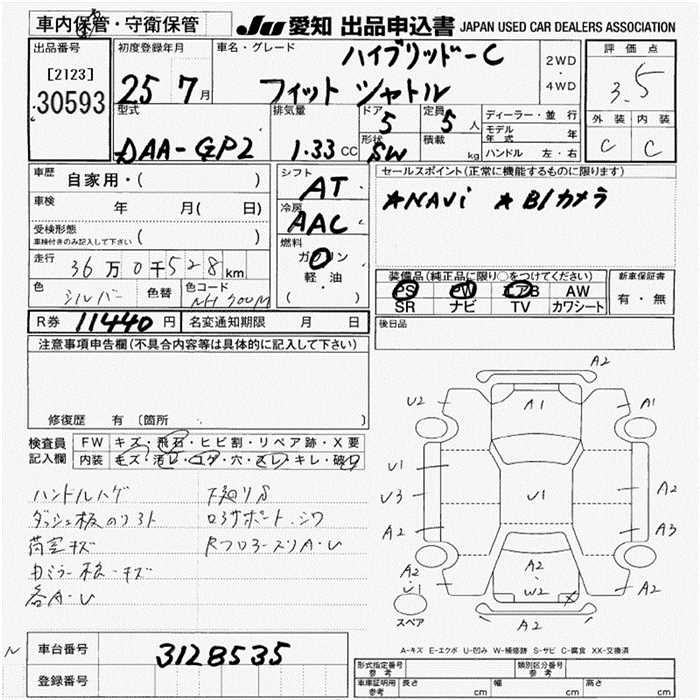 車内保管・守衛保管
JU 愛知 出品申込書 JAPAN USED CAR DEALERS ASSOCIATION
出品番号
[2123]
30593
初度登録年月
25 7月
車名・グレード
ハイブリッド-C
フィット シャトル
2WD
・
4WD
評価点
3.5
外装 内装
C C
型式
DAA-GP2
排気量
1.33 CC
ドア
5
形状
SW
定員
5 人
積載
kg
ディーラー・並行
モデル年式 年
ハンドル 左・右
車歴 自家用・( )
車検 年 月( 日)
受検形態
車検付きのみ記入して下さい ( )
走行 36万0千528km
色 シルバー 色替 色コード NH700M
シフト
AT
冷房
AAC
燃料
ガソリン
軽油
( )
セールスポイント(正常に機能するものに限ります)
★NAVi ★B/カメラ
装備品(純正品に限り○をつけてください)
PS PW エアB AW
SR ナビ TV カワシート
新車保証書
有・無
R券 11440円 名変通知期限 月 日
後日品
注意事項申告欄(不具合内容等は具体的に記入して下さい)
修復歴 有 〔箇所 〕
検査員記入欄
FW キズ・飛石・ヒビ割・リペア跡・X要
内装 キズ・汚レ・コゲ・穴・スレ・キレ・破レ
ハンドルハゲ 下廻りS
ダッシュ板のリ3ト
荷室キズ
各A・U
A2
U2 A1 A1
U1 U1 A2
U3
A2 A3
A2 U1
A2・W2
U2
A2
スペア
A-キズ E-エクボ U-凹み W-補修跡 S-サビ C-腐食 XX-交換済
N
車台番号 3128535
登録番号
形式指定番号 参考
類別区分番号 参考
車庫証明用 参考
長さ cm 幅 cm 高さ cm